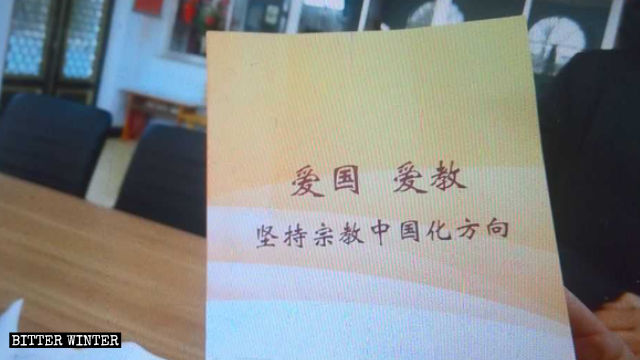 爱国 爱教
坚持宗教中国化方向
BITTER WINTER